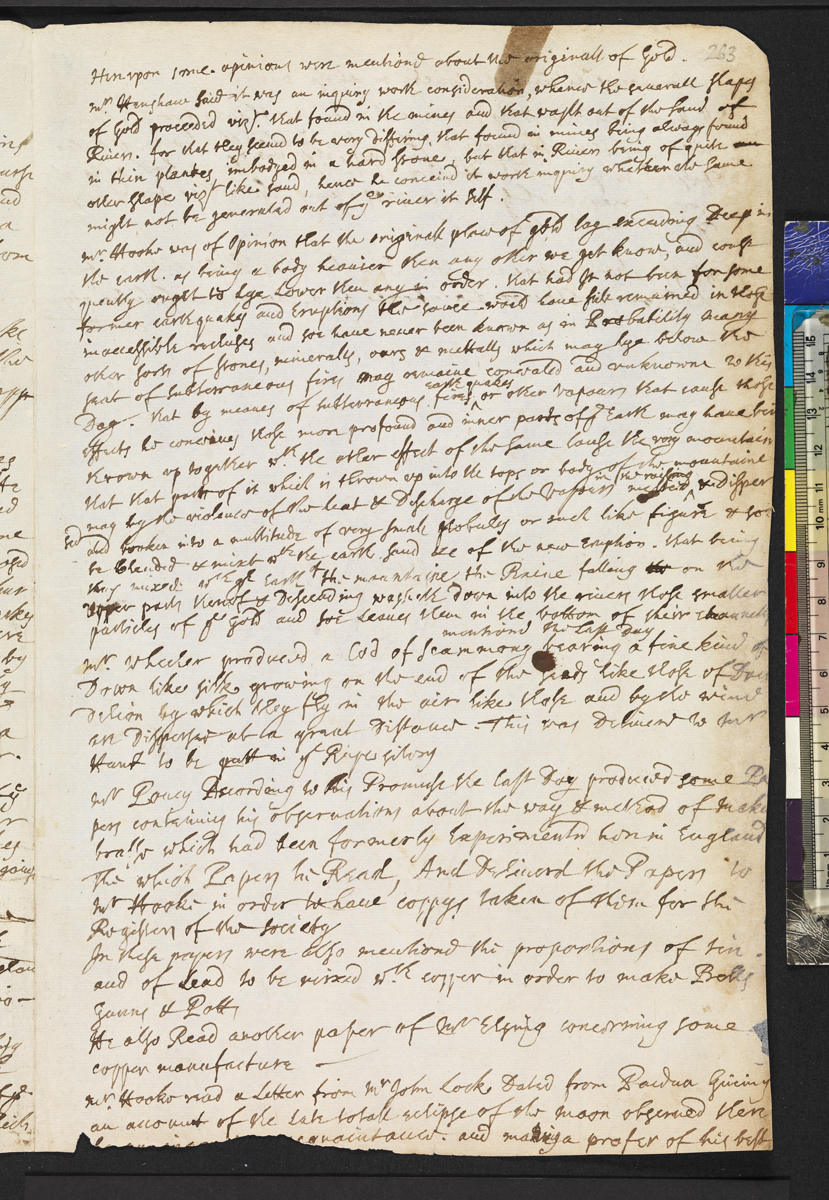 263
Hereupon some opinions were mentiond about the originall of Gold.
Mr. Henshaw said it was an inquiry worth consideration, whence the severall shapes
of Gold proceeded vizt. that found in the mines and that washt out of the sand of
Rivers. for that they seemd to be very differing, that found in mines being always found
in thin plantes imbodged in a hard stone, but that in Rivers being of quite an
other shape vizt like sand, hence he conceiud it worth inquiry whether the same
might not be generated out of ye river it self.
Mr. Hooke was of Opinion that the originall place of gold lay exceeding Deep in
the earth. as being a body heavier then any other we yet know, and conse
quently ought to Lye Lower then any in order. that had It not been for some
former earthquakes and Eruptions the same would have still remained in those
inaccessible recluses and soe have never been known as in Probability many
other sorts of stones, mineralls, oars & mettalls which may lye below the
seat of subterraneous fires may remaine concealed and unknowne to this
Day. that by meanes of subterraneous fires earthquakes or other vapours that cause those
effects he conceives those more profound and inner parts of ye Earth may have bin
thrown up together wth the other effect of the same cause the very mountain
that that part of it which is thrown up into the tops or body of the mountaine
may by the violence of the heat & Discharge of the vapours in the melted & Disper
sed and broken into a multitude of very small globules or such like figure & soe
be blended & mixt wth the earth sand &c of the new Eruption. that being
thus mixed wth ye Earth the mountaine, the Raine falling on the
upper parts thereof & Descending washeth down into the rivers those smaller
particles of ye Gold and soe Leaves them in the bottom of their channells
mentiond the last Day
Mr. Wheeler produced a Cod of Scammony bearing a fine kind of
Down like silk growing on the end of the seeds like those of Dan
delion by which they fly in the air like those and by the wind
are Dispersed at a great Distance. This was Deliuerd to Mr
Hunt to be putt in ye Repository
Mr Povey According to his Promise the last Day produced some Pa
pers containing his observations about the way & method of make
brasse which had been formerly Experimented here in England
The which Papers he Read, And Deliuerd the Papers to
Mr Hooke in order to have coppys taken of them for the
Registers of the Society
In these papers were also mentiond the proportions of tin
and of Lead to be mixed wth copper in order to make Bells
Gunns & Potts
He also Read another paper of Mr Elsing concerning some
copper manufacture
Mr Hooke read a Letter from Mr John Lock Dated from Padua Giving
an account of the Late totall eclipse of the moon observed there
acquaintance. and making a profer of his best